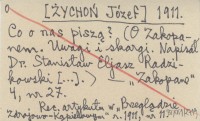 [ŻYCHOŃ Józef] 1911.
Co o nas piszą? (O Zakopa-
nem. Uwagi i skargi. Napisał
Dr. Stanisław Eljasz Radzi-
kowski [...].) — „Zakopane"
4, nr 27.
Rec. artykułu w „Przeglądzie
Zdrojowo-Kąpielowym" r. 1911, nr 11